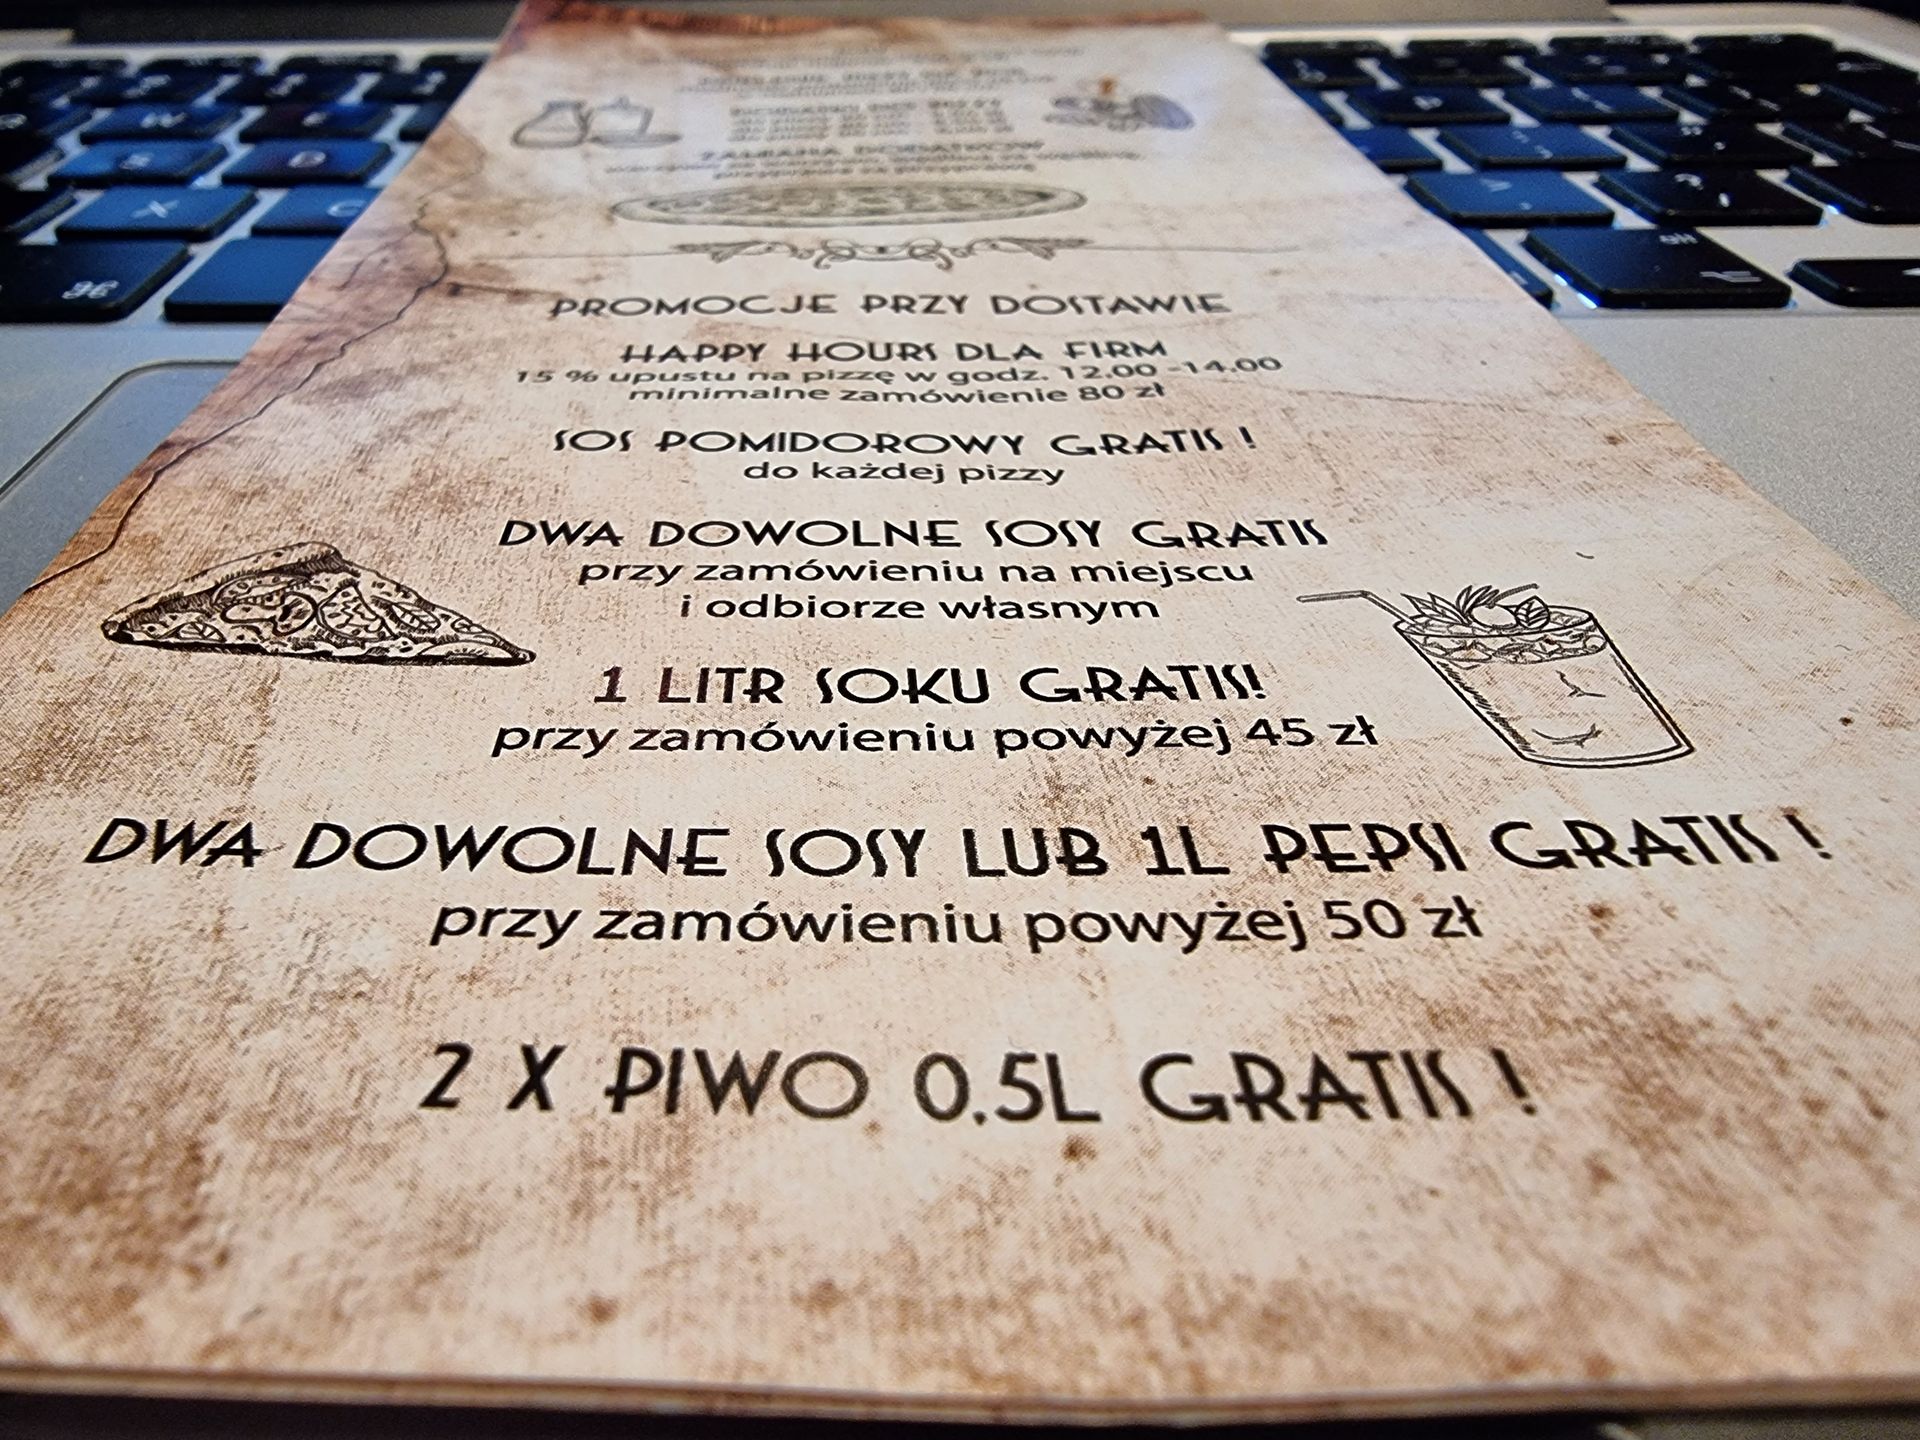 ZAMIANA DODATKÓW
PROMOCJE PRZY DOSTAWIE
HAPPY HOURS DLA FIRM
15 % upustu na pizzę w godz. 12.00 -14.00
minimalne zamówienie 80 zł
SOS POMIDOROWY GRATIS !
do każdej pizzy
DWA DOWOLNE SOSY GRATIS
przy zamówieniu na miejscu
i odbiorze własnym
1 LITR SOKU GRATIS!
przy zamówieniu powyżej 45 zł
DWA DOWOLNE SOSY LUB 1L PEPSI GRATIS !
przy zamówieniu powyżej 50 zł
2 X PIWO 0.5L GRATIS !